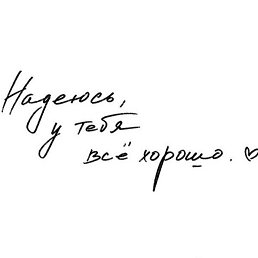 Надеюсь,
у тебя
всё хорошо. ♡